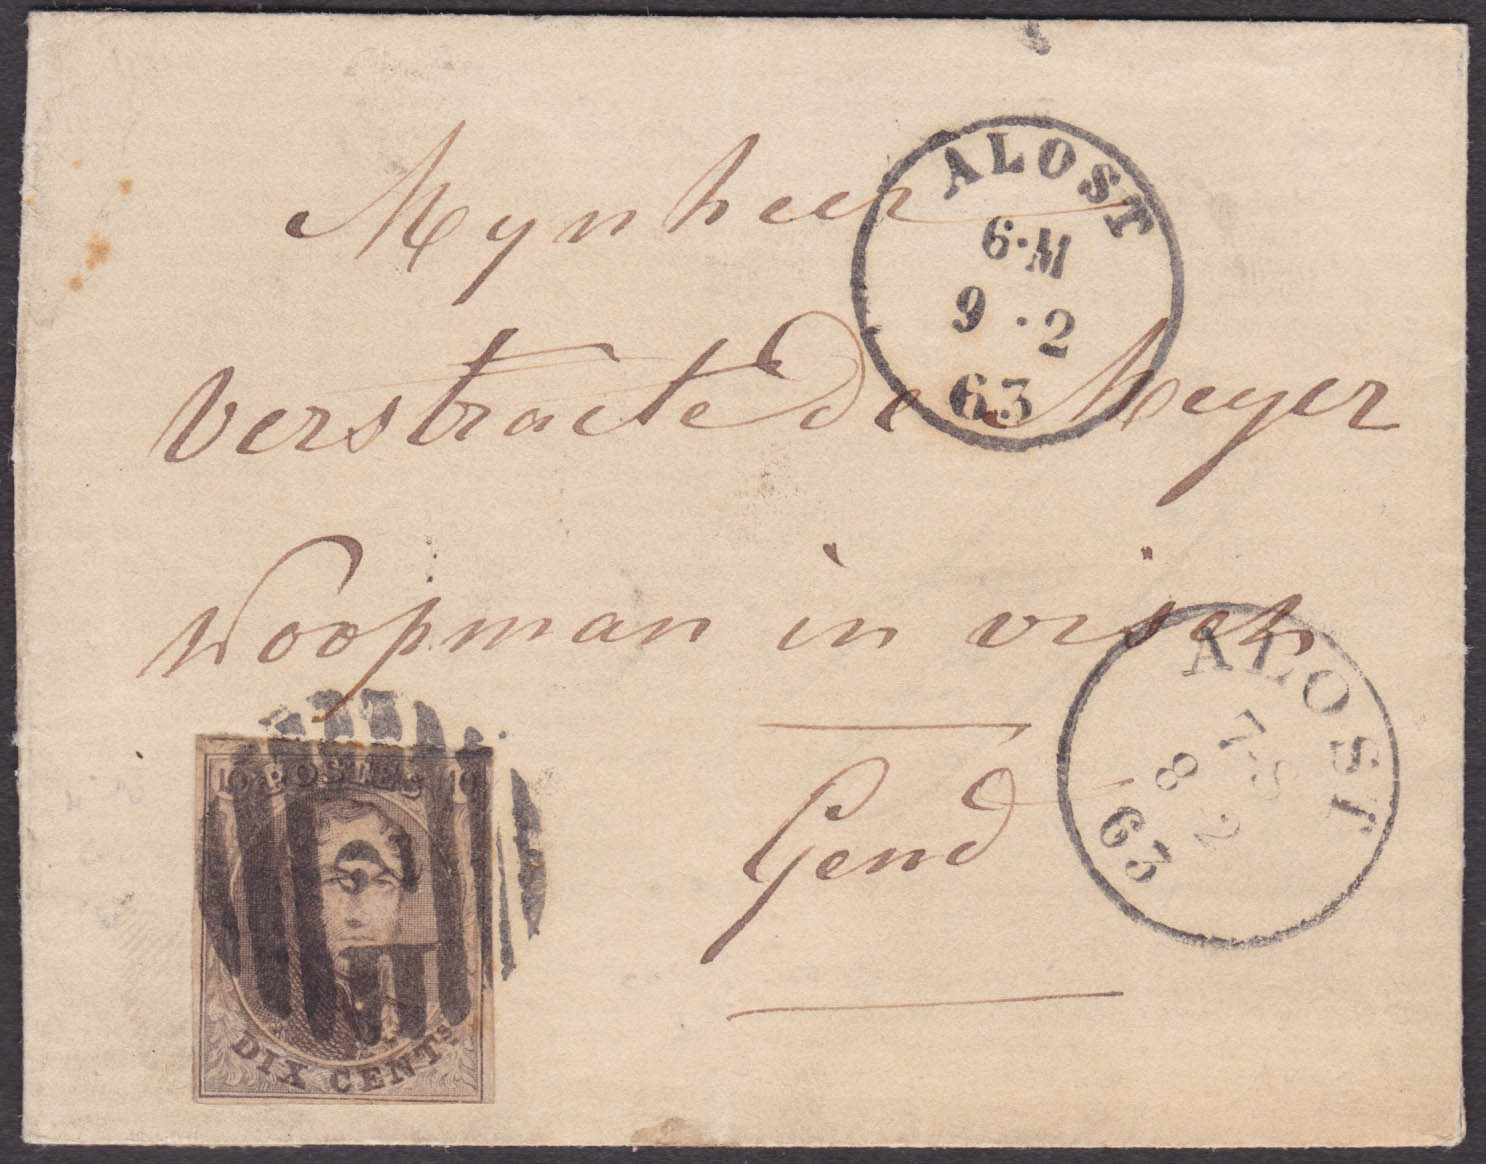 Mynheer
Verstraete De Meyer
Koopman in visch
Gend
ALOST
6·M
9·2
63
ALOST
7·S
8 2
63
10 POSTES 10
DIX CENTS